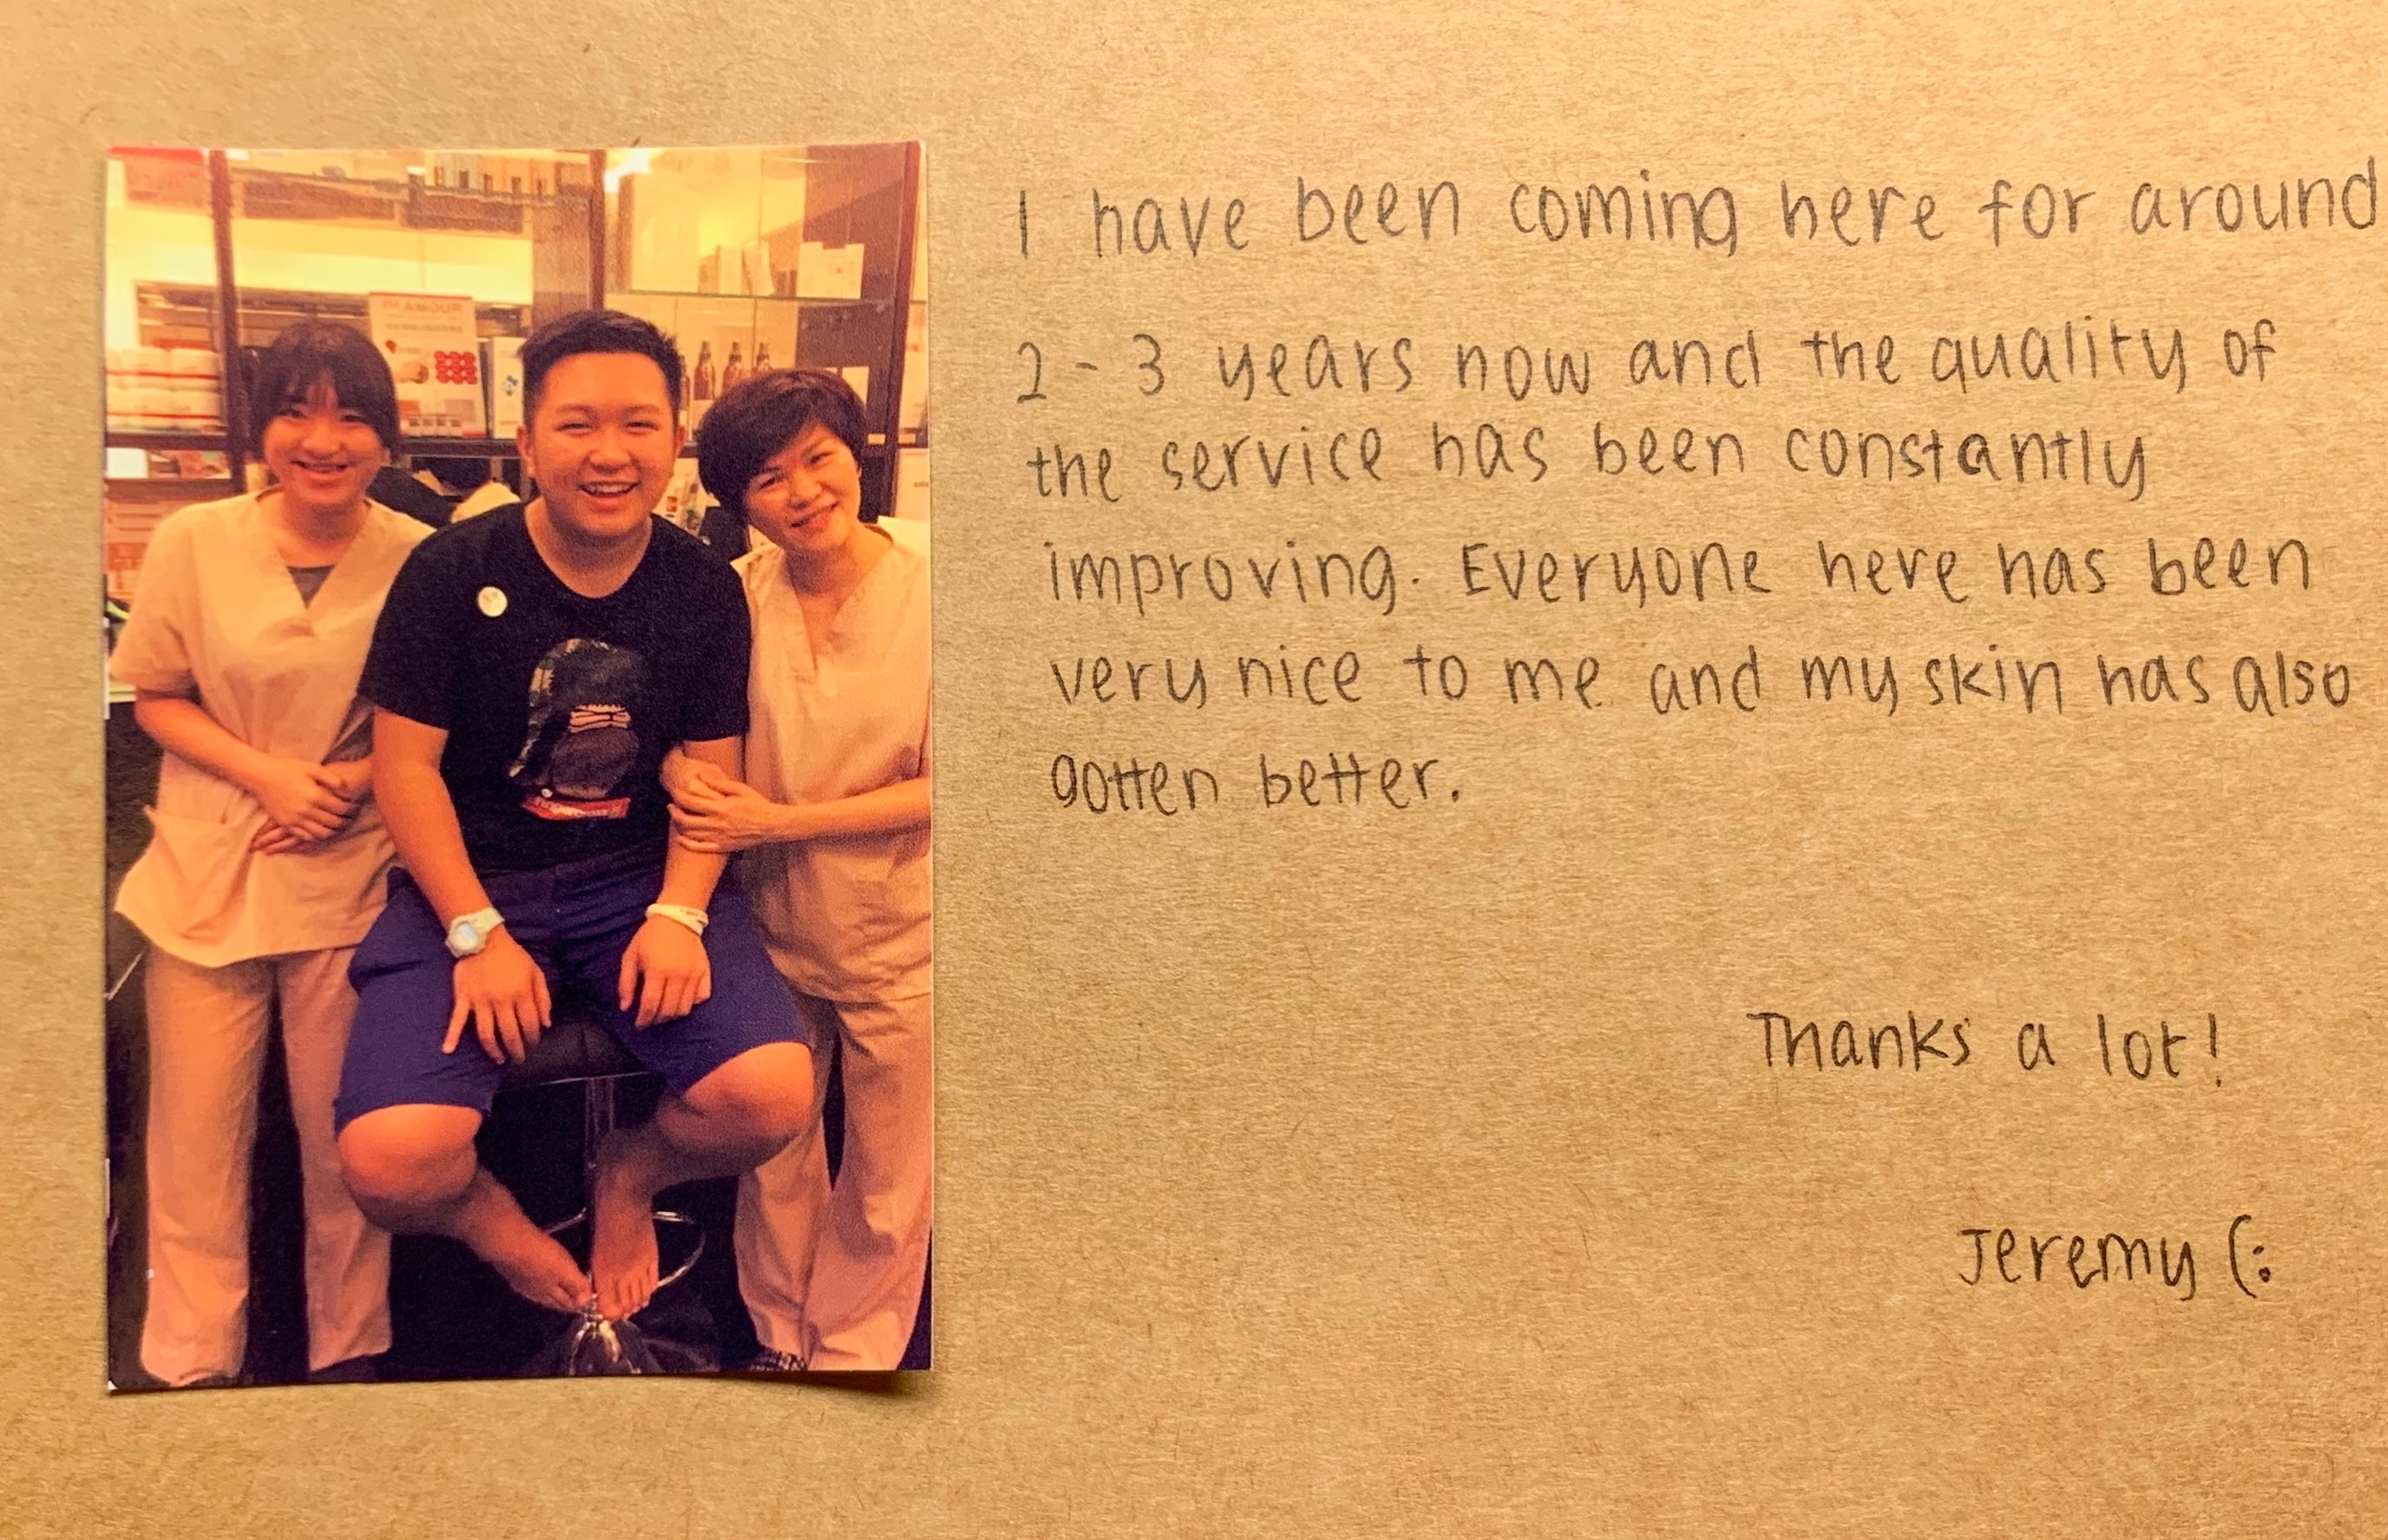 I have been coming here for around
2 - 3 years now and the quality of
the service has been constantly
improving. Everyone here has been
very nice to me and my skin has also
gotten better.
Thanks a lot!
Jeremy (: